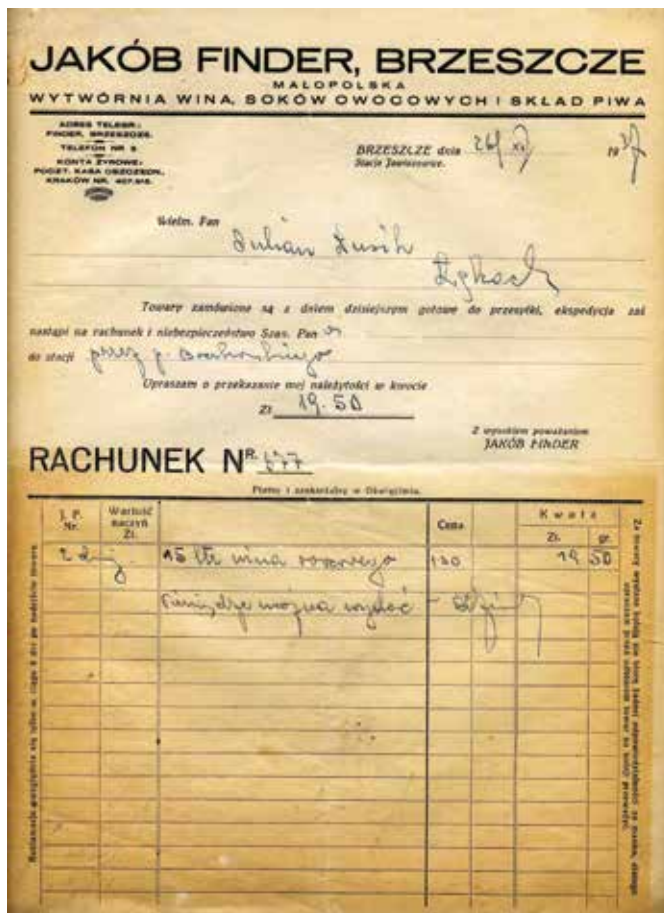 JAKÓB FINDER, BRZESZCZE
MAŁOPOLSKA
WYTWÓRNIA WINA, SOKÓW OWOCOWYCH I SKŁAD PIWA
ADRES TELEGR.:
FINDER, BRZESZCZE.
TELEFON NR 5
KONTA ŻYROWE:
POCZT. KASA OSZCZĘDN.
KRAKÓW NR.
BRZESZCZE dnia 26/ XI 1937
Stacja Jawiszowice.
Wielm. Pan
Julian
Towary zamówione są z dniem dzisiejszym gotowe do przesyłki, ekspedycja zaś
nastąpi na rachunek i niebezpieczeństwo Szan. Pan a
do stacji przez p.
Upraszam o przekazanie mej należytości w kwocie
Zł 19.50
Z wysokiem poważaniem
JAKÓB FINDER
RACHUNEK NR. 677
Płatny i zaskarżalny w Oświęcimiu.
L. P.
Nr.
Wartość
naczyń
Zł.
Cena
Kwota
Zł. gr.
15 ltr wina 130 19 50
Pieniądze można wydać -
Reklamacje uwzględnia się tylko w ciągu 8 dni po nadejściu towaru.